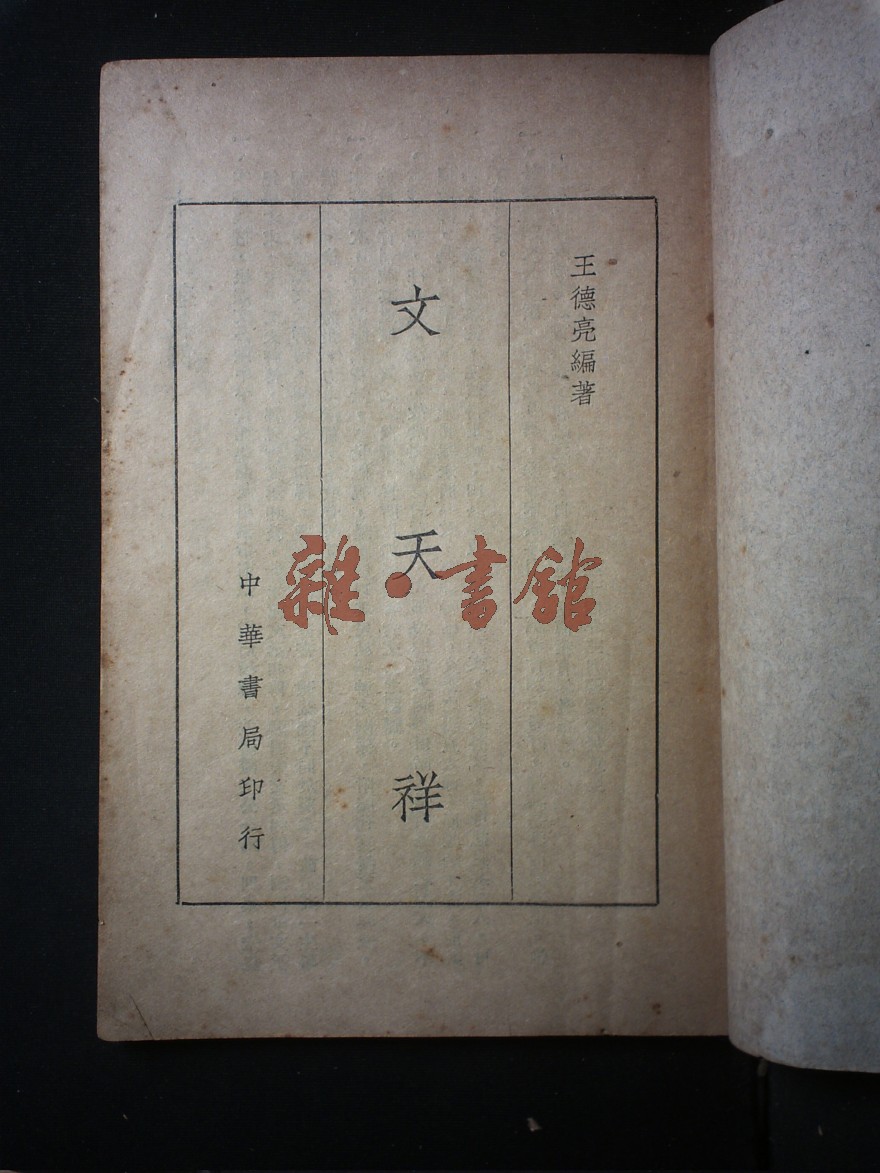 王德亮編著
文天祥
中華書局印行
雜·書館